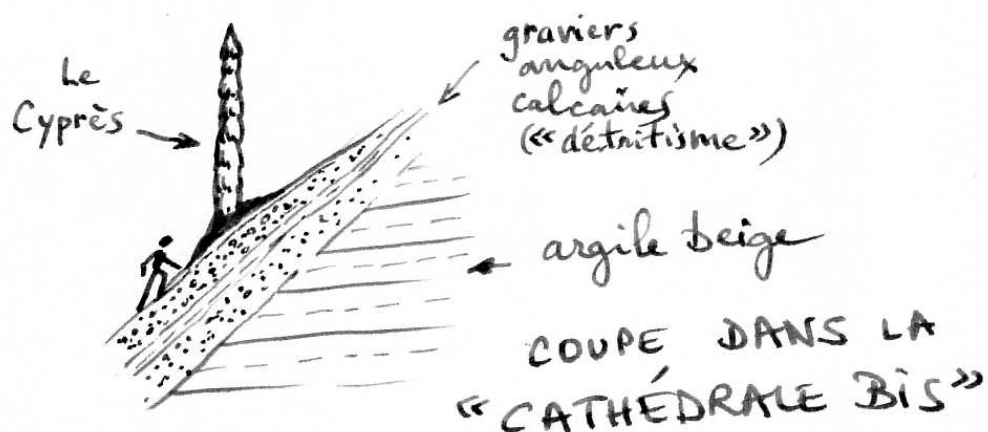 Le
Cyprès
graviers
anguleux
calcaires
(«détritisme»)
argile beige
COUPE DANS LA
"CATHÉDRALE BIS"